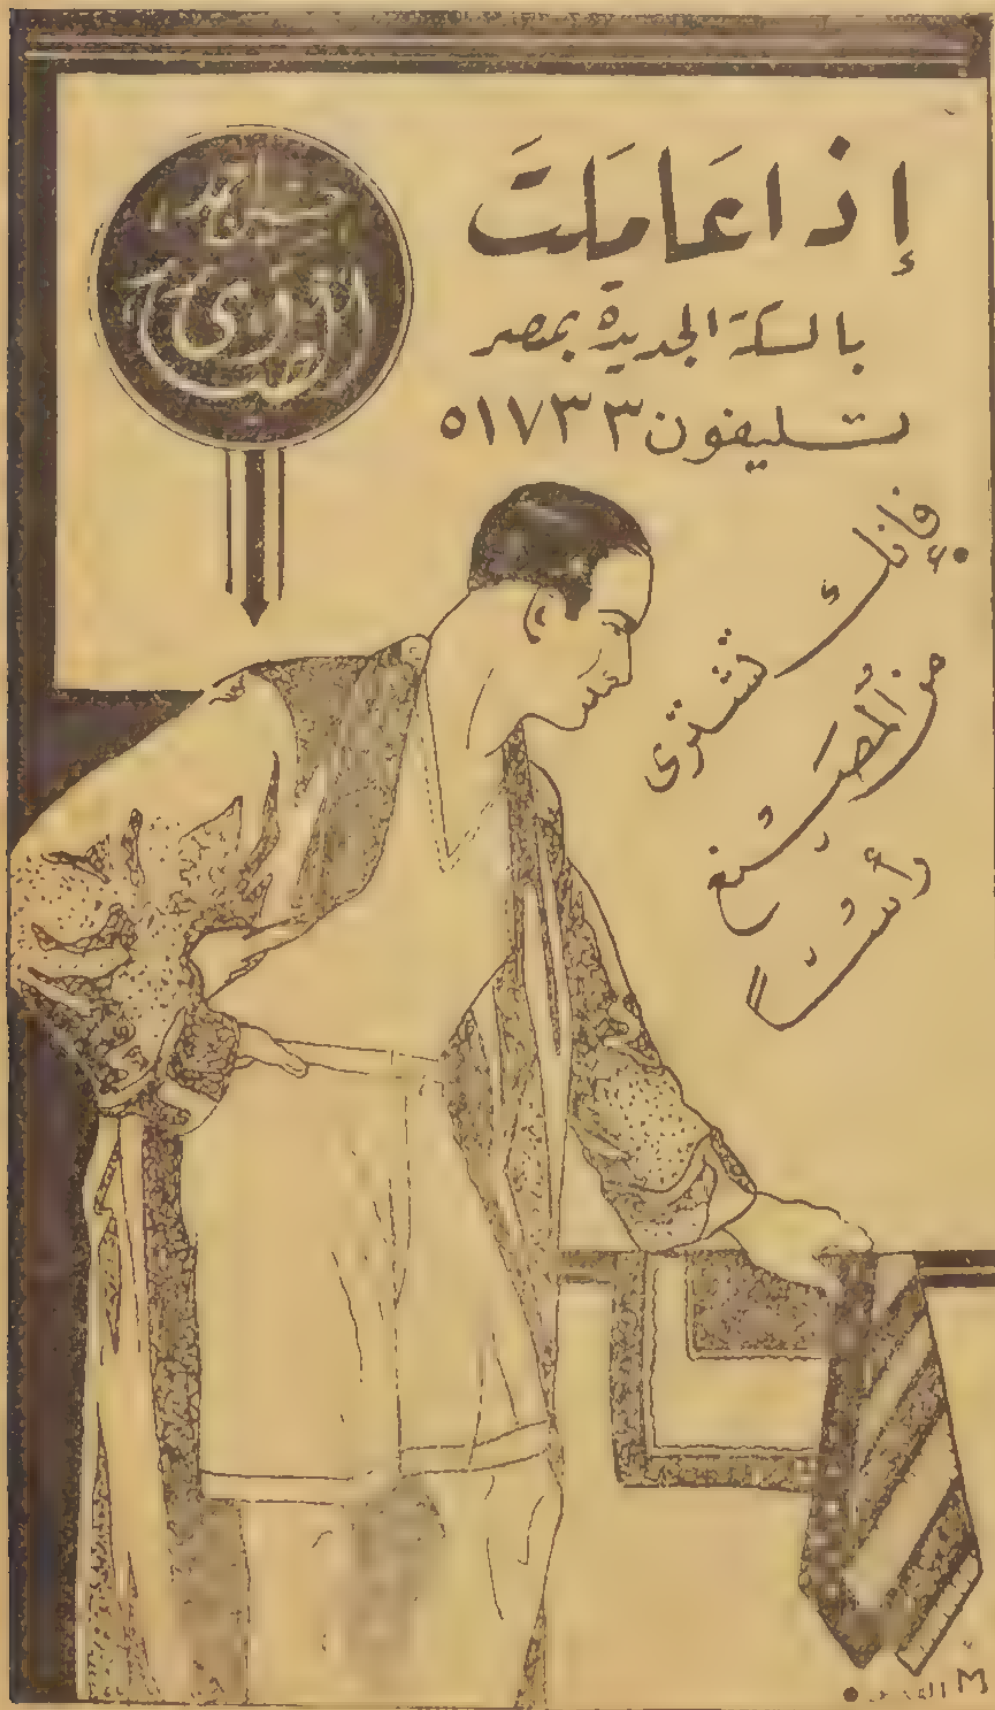 إذا عَامَلتَ
بالسكة الجديدة بمصر
تليفون ٥١٧٣٣
فإنك تشترى
من المُصَنِع
رأسًا